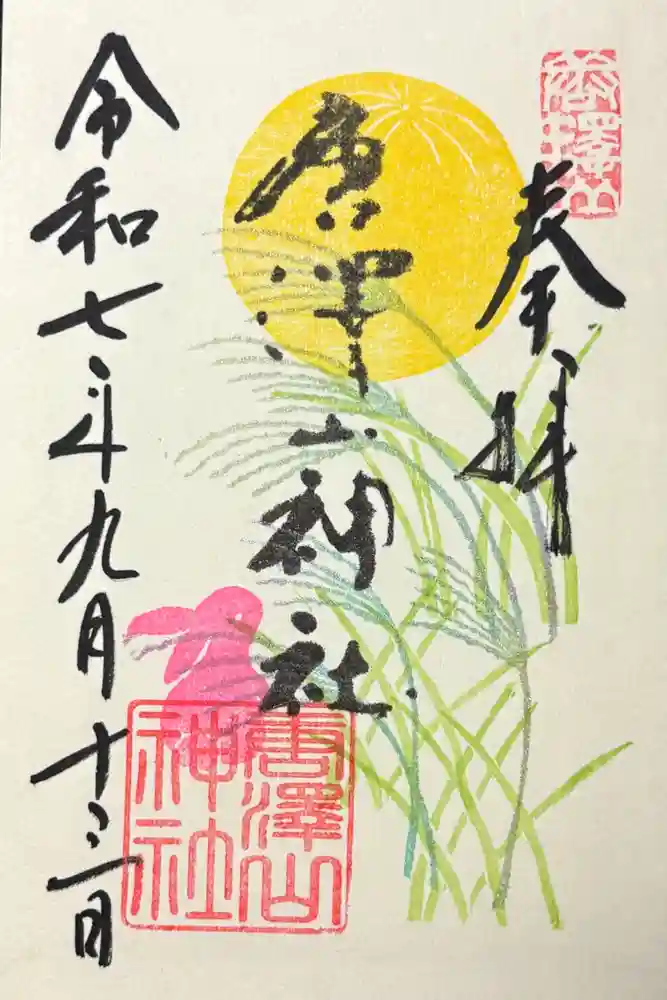 唐澤山
奉拝
唐澤山神社
唐澤山
神社
令和七年九月十三日